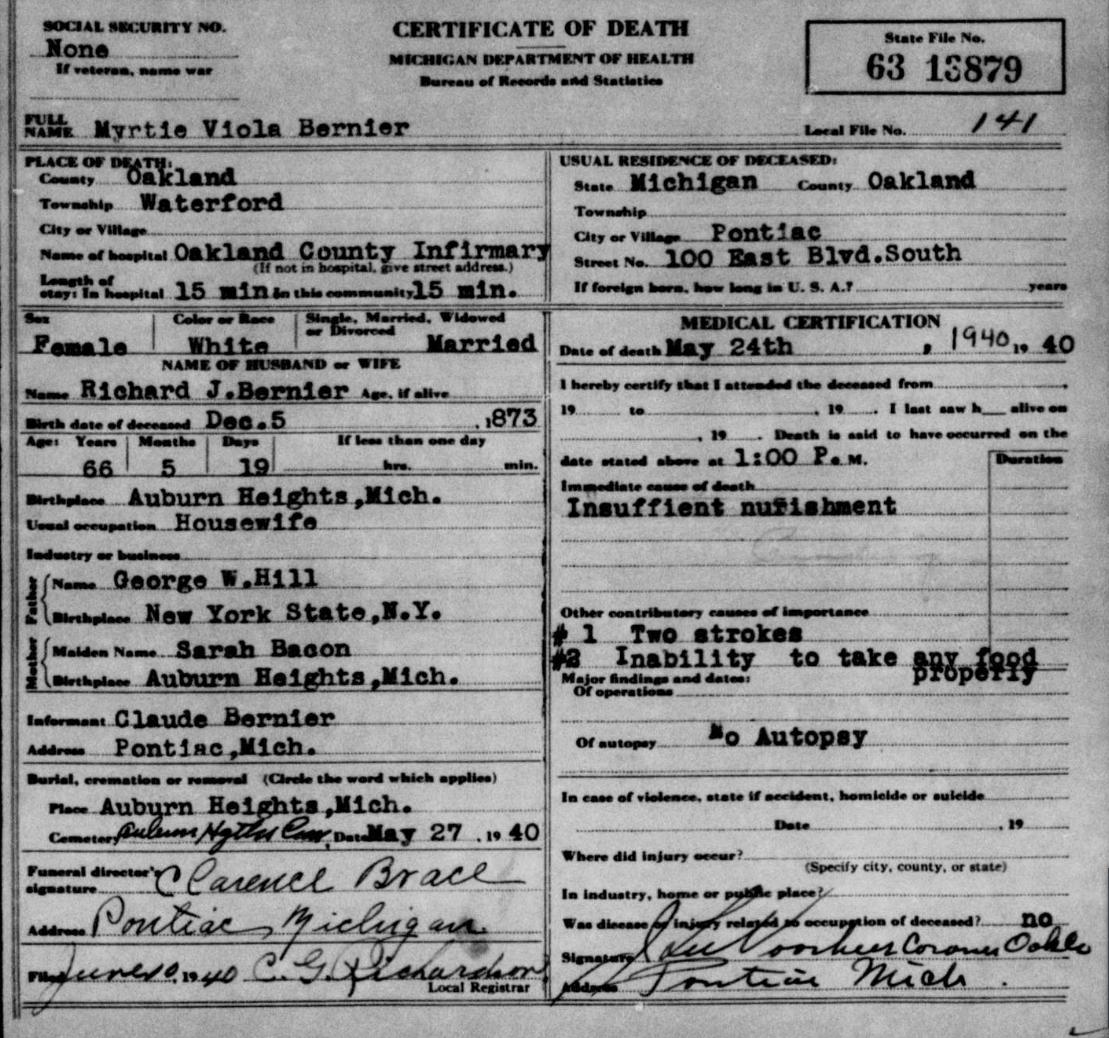 SOCIAL SECURITY NO.
None
If veteran, name war
CERTIFICATE OF DEATH
MICHIGAN DEPARTMENT OF HEALTH
Bureau of Records and Statistics
State File No.
63 13879
FULL NAME Myrtie Viola Bernier
Local File No. 141
PLACE OF DEATH:
County Oakland
Township Waterford
City or Village
Name of hospital Oakland County Infirmary
(If not in hospital, give street address.)
Length of stay: In hospital 15 min. In this community 15 min.
USUAL RESIDENCE OF DECEASED:
State Michigan County Oakland
Township
City or Village Pontiac
Street No. 100 East Blvd.South
If foreign born, how long in U. S. A.? years
Sex Color or Race Single, Married, Widowed or Divorced
Female White Married
NAME OF HUSBAND or WIFE
Name Richard J.Bernier Age, if alive
Birth date of deceased Dec.5 ,1873
Age: Years Months Days If less than one day
66 5 19 hrs. min.
Birthplace Auburn Heights,Mich.
Usual occupation Housewife
Industry or business
Father
Name George W.Hill
Birthplace New York State,N.Y.
Mother
Maiden Name Sarah Bacon
Birthplace Auburn Heights,Mich.
Informant Claude Bernier
Address Pontiac,Mich.
Burial, cremation or removal (Circle the word which applies)
Place Auburn Heights,Mich.
Cemetery Auburn Hgths Cem. Date May 27 , 19 40
Funeral director's signature Clarence Brace
Address Pontiac Michigan
Filed June 10, 1940 C. G. Richardson
Local Registrar
MEDICAL CERTIFICATION
Date of death May 24th , 1940 19 40
I hereby certify that I attended the deceased from ,
19 to , 19 . I last saw h alive on
, 19 . Death is said to have occurred on the
date stated above at 1:00 P.M.
Duration
Immediate cause of death
Insuffient nurishment
Other contributory causes of importance
# 1 Two strokes
#2 Inability to take any food
properly
Major findings and dates:
Of operations
Of autopsy No Autopsy
In case of violence, state if accident, homicide or suicide
Date , 19
Where did injury occur?
(Specify city, county, or state)
In industry, home or public place?
Was disease or injury related to occupation of deceased? no
Signature Voorhees Coroner
Address Pontiac Mich.